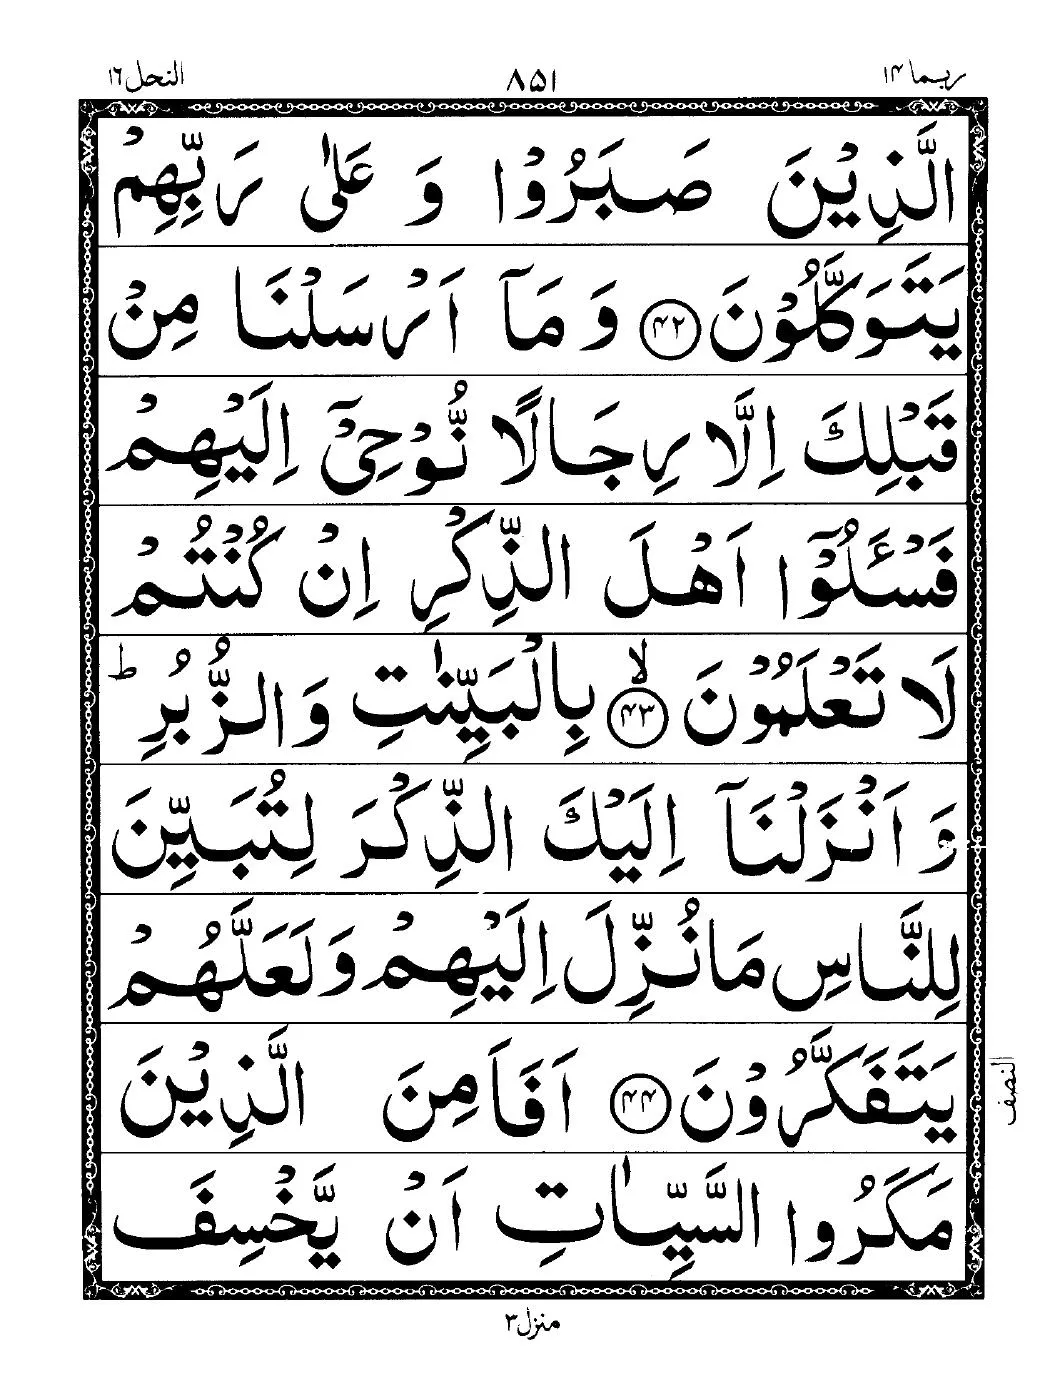 ربما ١٤
٨٥١
النحل ١٦
الَّذِيْنَ صَبَرُوْا وَ عَلٰى رَبِّهِمْ
يَتَوَكَّلُوْنَ ﴿۴۲﴾ وَ مَاۤ اَرْسَلْنَا مِنْ
قَبْلِكَ اِلَّا رِجَالًا نُّوْحِیْۤ اِلَيْهِمْ
فَسْـَٔلُوْۤا اَهْلَ الذِّكْرِ اِنْ كُنْتُمْ
لَا تَعْلَمُوْنَ ﴿۴۳﴾ۙ بِالْبَيِّنٰتِ وَالزُّبُرِ ؕ
وَ اَنْزَلْنَاۤ اِلَيْكَ الذِّكْرَ لِتُبَيِّنَ
لِلنَّاسِ مَا نُزِّلَ اِلَيْهِمْ وَلَعَلَّهُمْ
يَتَفَكَّرُوْنَ ﴿۴۴﴾ اَفَاَمِنَ الَّذِيْنَ
النصف
مَكَرُوا السَّيِّاٰتِ اَنْ يَّخْسِفَ
منزل ٣